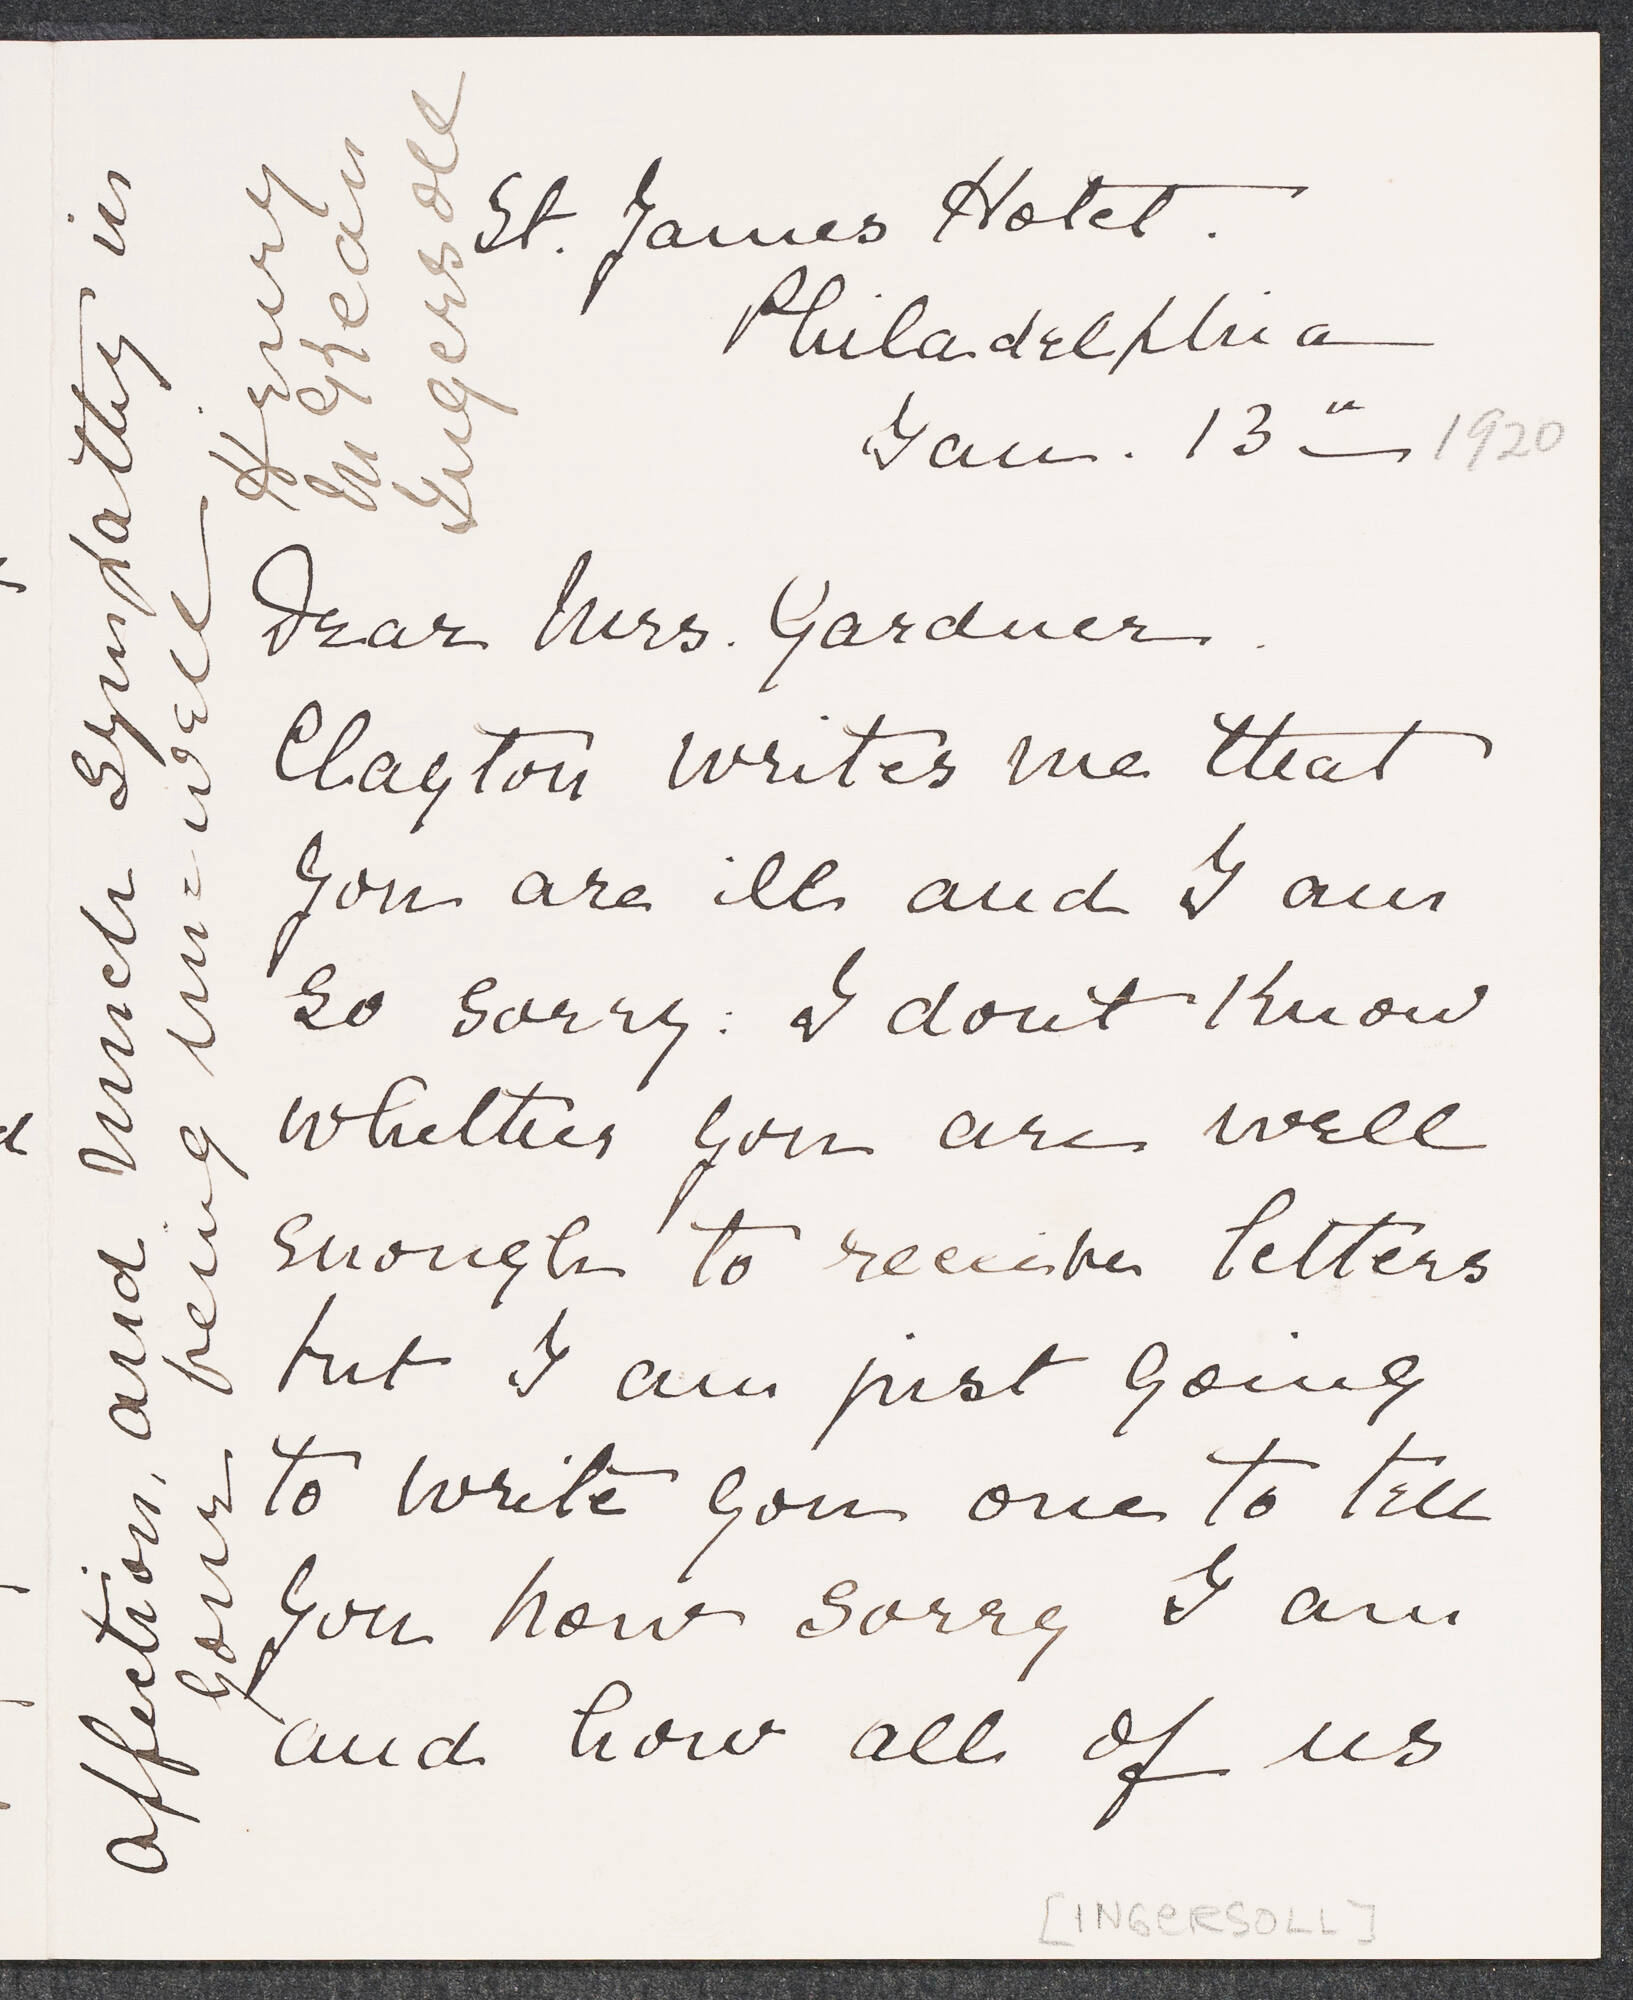 St. James Hotel.
Philadelphia
Jan. 13th 1920
Dear Mrs. Gardner.
Clayton writes me that
you are ill and I am
so sorry: I don't know
whether you are well
enough to receive letters
but I am just going
to write you one to tell
you how sorry I am
and how all of us
affection, and much sympathy in
your being un-well
Henry
McKean
Ingersoll
[INGERSOLL]